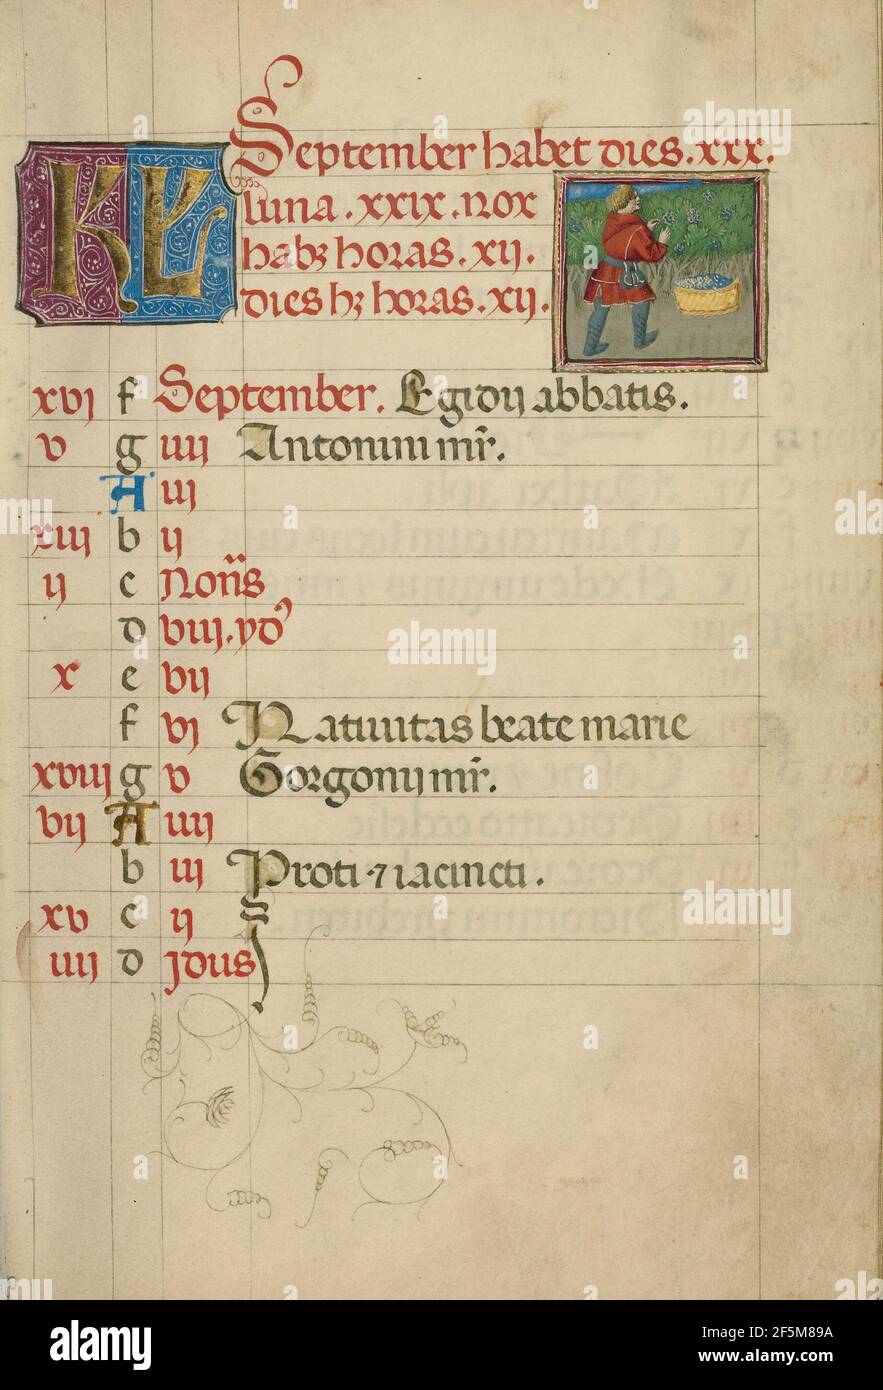 KL
September habet dies. xxx.
luna. xxix. nox
habꝫ horas. xij.
dies hꝫ horas. xij.
xvj f September. Egidij abbatis.
v g iiij Antonini mr̃.
A iij
xiij b ij
ij c Non̄s
d viij. ydꝰ
x e vij
f vj Natiuitas beate marie
xviij g v Gorgonij mr̃.
vij A iiij
b iij Proti ⁊ iacincti.
xv c ij
iiij d jdus
alamy
Image ID: 2F5M89A
www.alamy.com